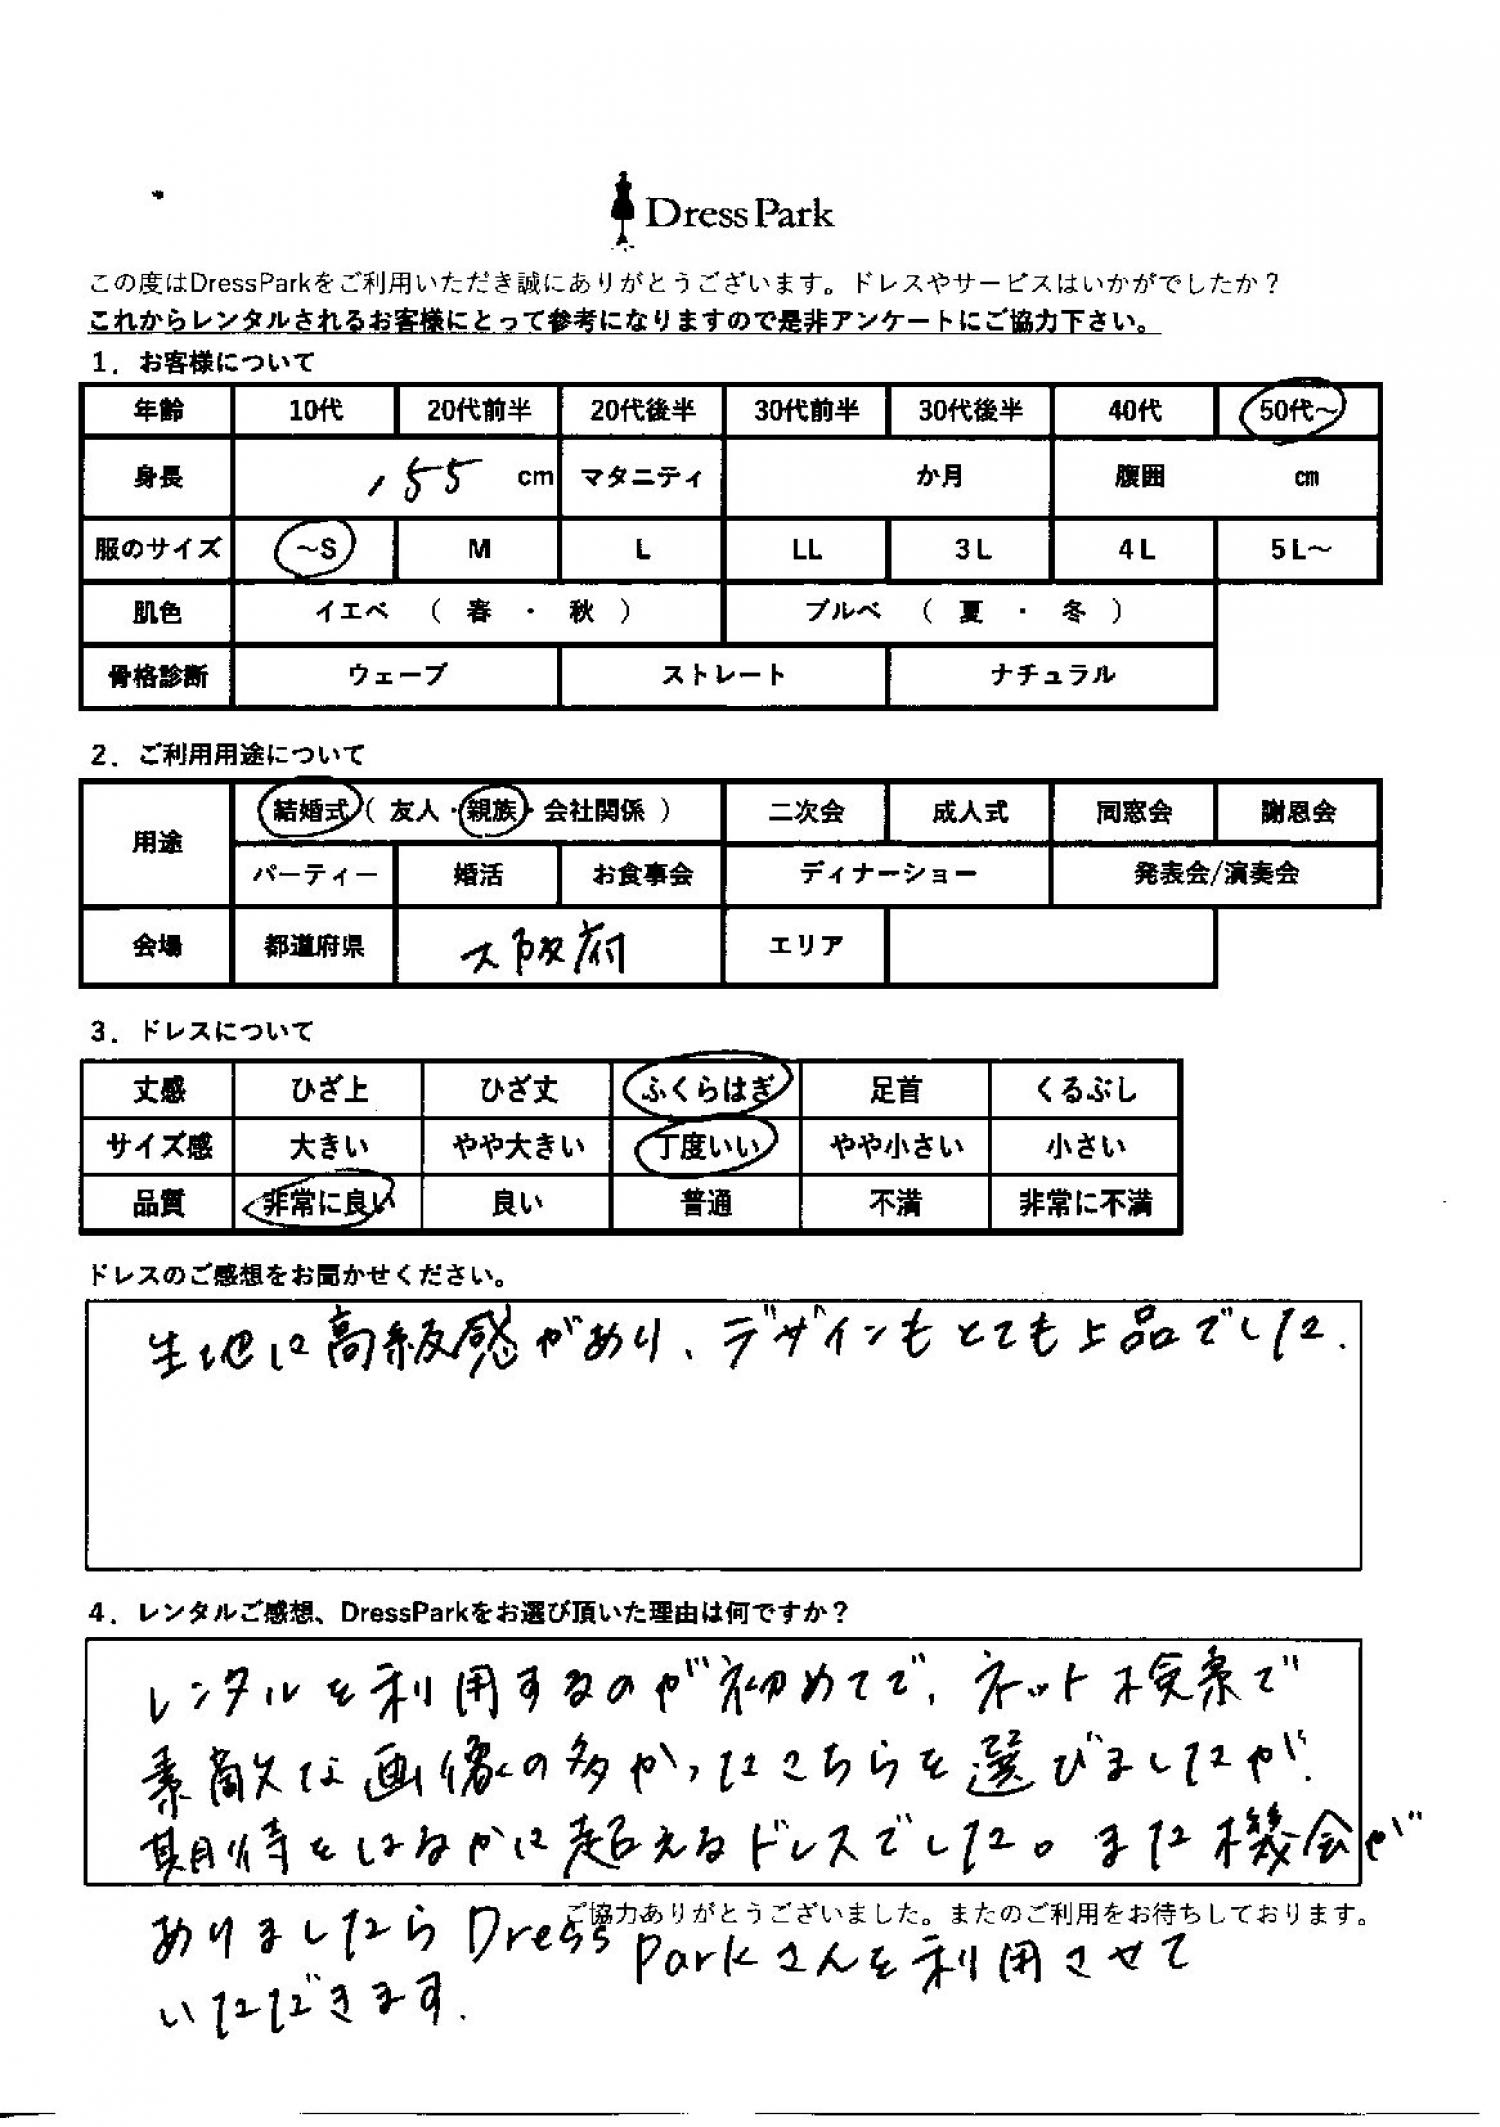 Dress Park
この度はDressParkをご利用いただき誠にありがとうございます。ドレスやサービスはいかがでしたか？
これからレンタルされるお客様にとって参考になりますので是非アンケートにご協力下さい。
1．お客様について
年齢 10代 20代前半 20代後半 30代前半 30代後半 40代 50代～
身長 155 cm マタニティ か月 腹囲 cm
服のサイズ ～S M L LL 3L 4L 5L～
肌色 イエベ （ 春 ・ 秋 ） ブルベ （ 夏 ・ 冬 ）
骨格診断 ウェーブ ストレート ナチュラル
2．ご利用用途について
用途 結婚式（ 友人・親族・会社関係 ） 二次会 成人式 同窓会 謝恩会
パーティー 婚活 お食事会 ディナーショー 発表会/演奏会
会場 都道府県 大阪府 エリア
3．ドレスについて
丈感 ひざ上 ひざ丈 ふくらはぎ 足首 くるぶし
サイズ感 大きい やや大きい 丁度いい やや小さい 小さい
品質 非常に良い 良い 普通 不満 非常に不満
ドレスのご感想をお聞かせください。
生地に高級感があり、デザインもとても上品でした.
4．レンタルご感想、DressParkをお選び頂いた理由は何ですか？
レンタルを利用するのが初めてで、ネット検索で
素敵な画像の多かったこちらを選びましたが、
期待をはるかに超えるドレスでした。また機会が
ご協力ありがとうございました。またのご利用をお待ちしております。
ありましたらDress Parkさんを利用させて
いただきます.